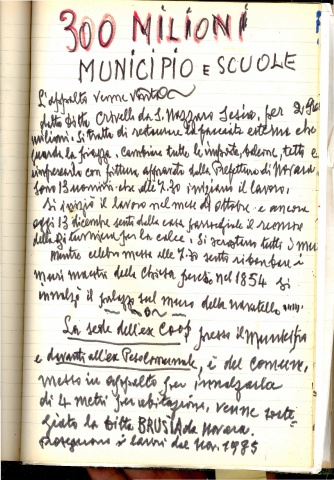 300 MILIONI
MUNICIPIO E SCUOLE
L'appalto venne vinto
dalla ditta Crivelli da S. Nazzaro Sesia, per
milioni. Si tratta di la facciata esterna che
guarda la piazza. Cambiare tutte le imposte, balconi, tetto e
con pittura dalla Prefettura di Novara
Sono 13 uomini che alle 7.30 iniziano il lavoro.
Si iniziò il lavoro nel mese di ottobre e ancora
oggi 13 dicembre sento dalla casa parrocchiale il rumore
della per la calce. Si tutti i muri
Mentre celebro messa alle 7.30 sento i
muri maestri della chiesa perché nel 1854 si
innalzò il palazzo sul muro della navatella
La sede dell'ex Coop presso il Municipio
e davanti all'ex Peso Comunale, è del comune,
messo in appalto per innalzarla
di 4 metri per abitazione, venne
la ditta BRUSIA da Novara
proseguono i lavori dal Nov. 1985